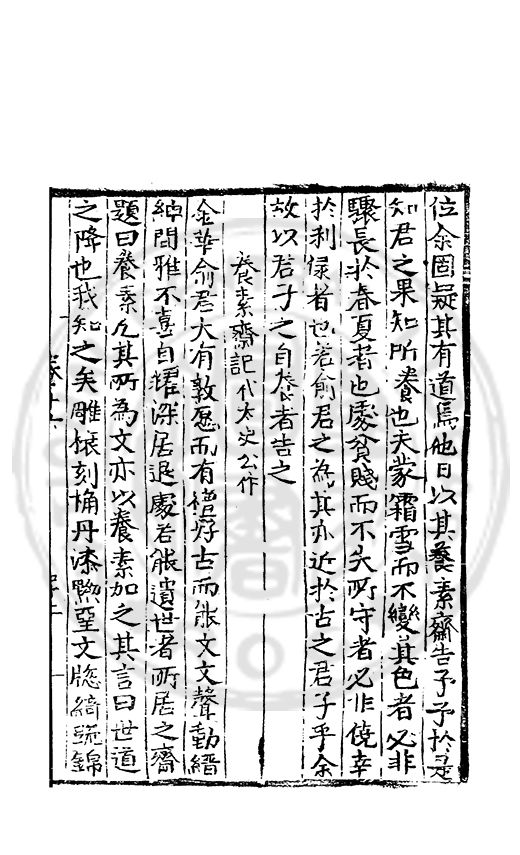 位余固疑其有道焉他日以其養素齋告予予於是
知君之果知所養也夫蒙霜雪而不變其色者必非
驟長於春夏者也處貧賤而不失所守者必非僥幸
於利祿者也若俞君之為其亦近於古之君子乎余
故以君子之自養者告之
養素齋記代太史公作
金華俞君大有敦愿而有禮好古而能文文聲動縉
紳間雅不喜自耀深居退處若能遺世者所居之齋
題曰養素凡其所為文亦以養素加之其言曰世道
之降也我知之矣雕榱刻桷丹漆黝堊文牕綺疏錦